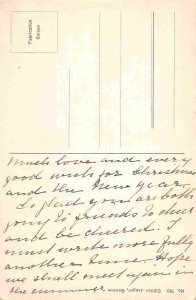 Fabrication
Suisse
Much love and every
good wish for Christmas
and the New Year.
So glad you are both
going to friends to cheer
and be cheered. I
must write more fully
another time. Hope
we shall meet again in
the summer
No. 783. Editor Jaeger, Genève